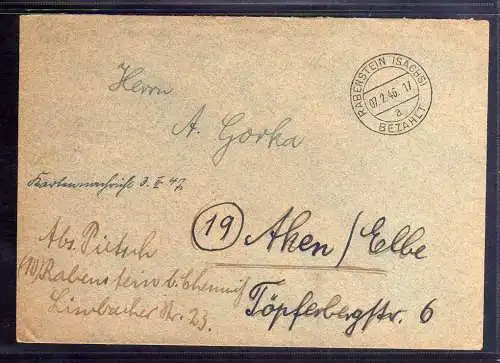 RABENSTEIN (SACHS)
07.2.46.17
a
BEZAHLT
Herrn
A. Gorka
Kartennachricht 3. II. 47.
(19) Aken/Elbe
Töpferbergstr. 6
Abs. Pietsch
(10) Rabenstein b. Chemnitz
Limbacher Str. 23.